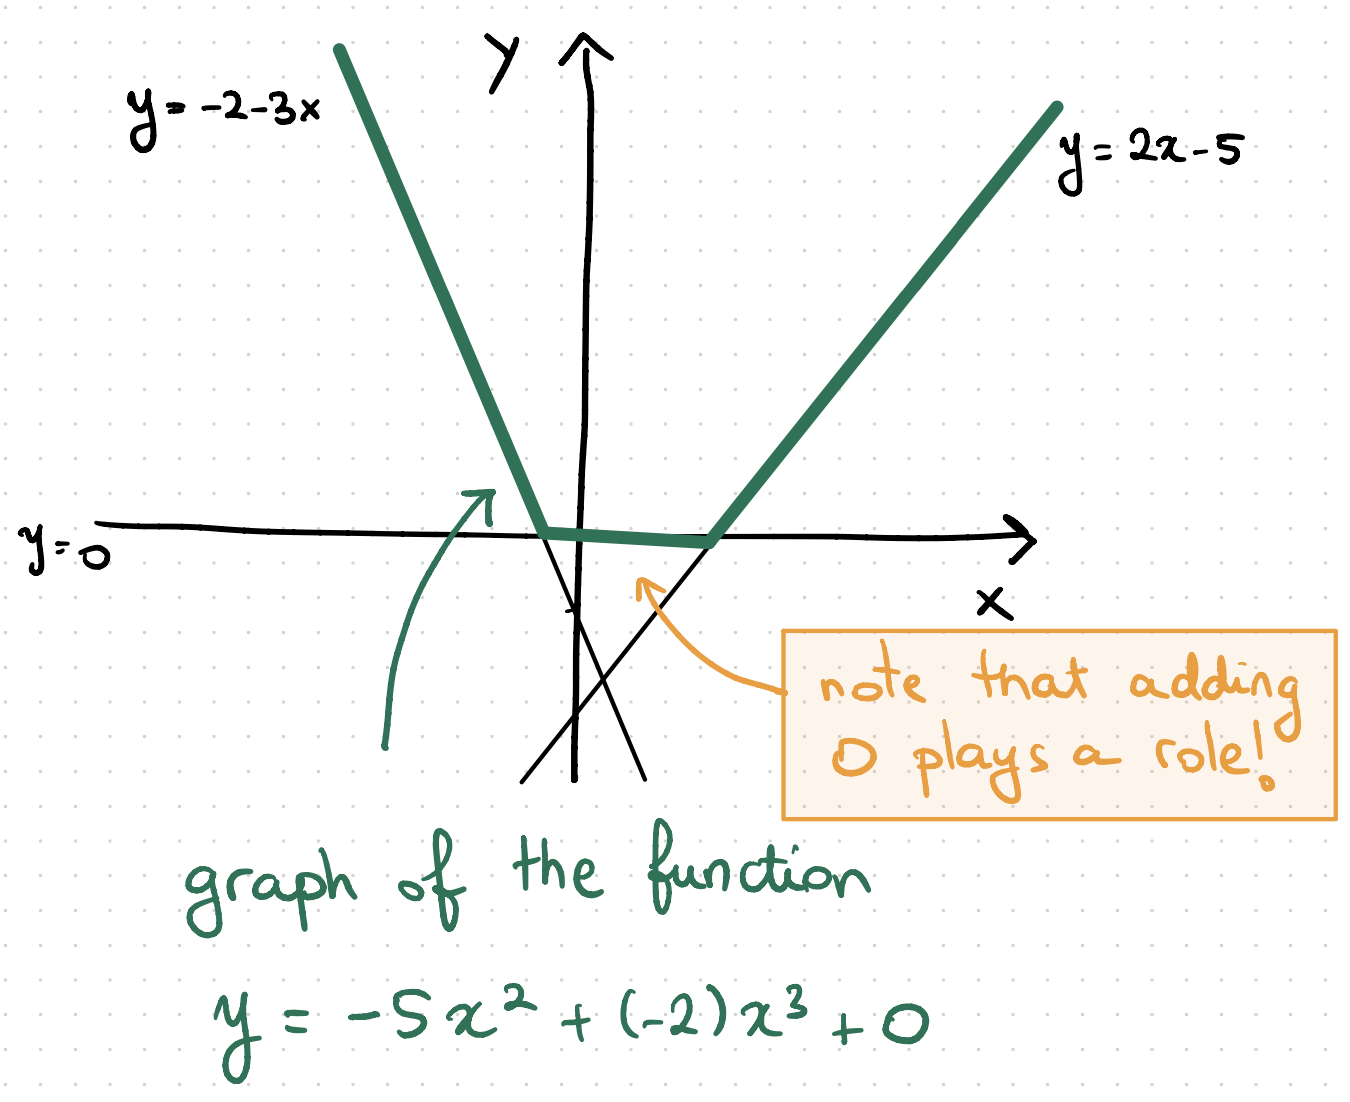 y
y = -2-3x
y = 2x-5
y=0
x
note that adding
0 plays a role!
graph of the function
y = -5x² + (-2)x³ + 0